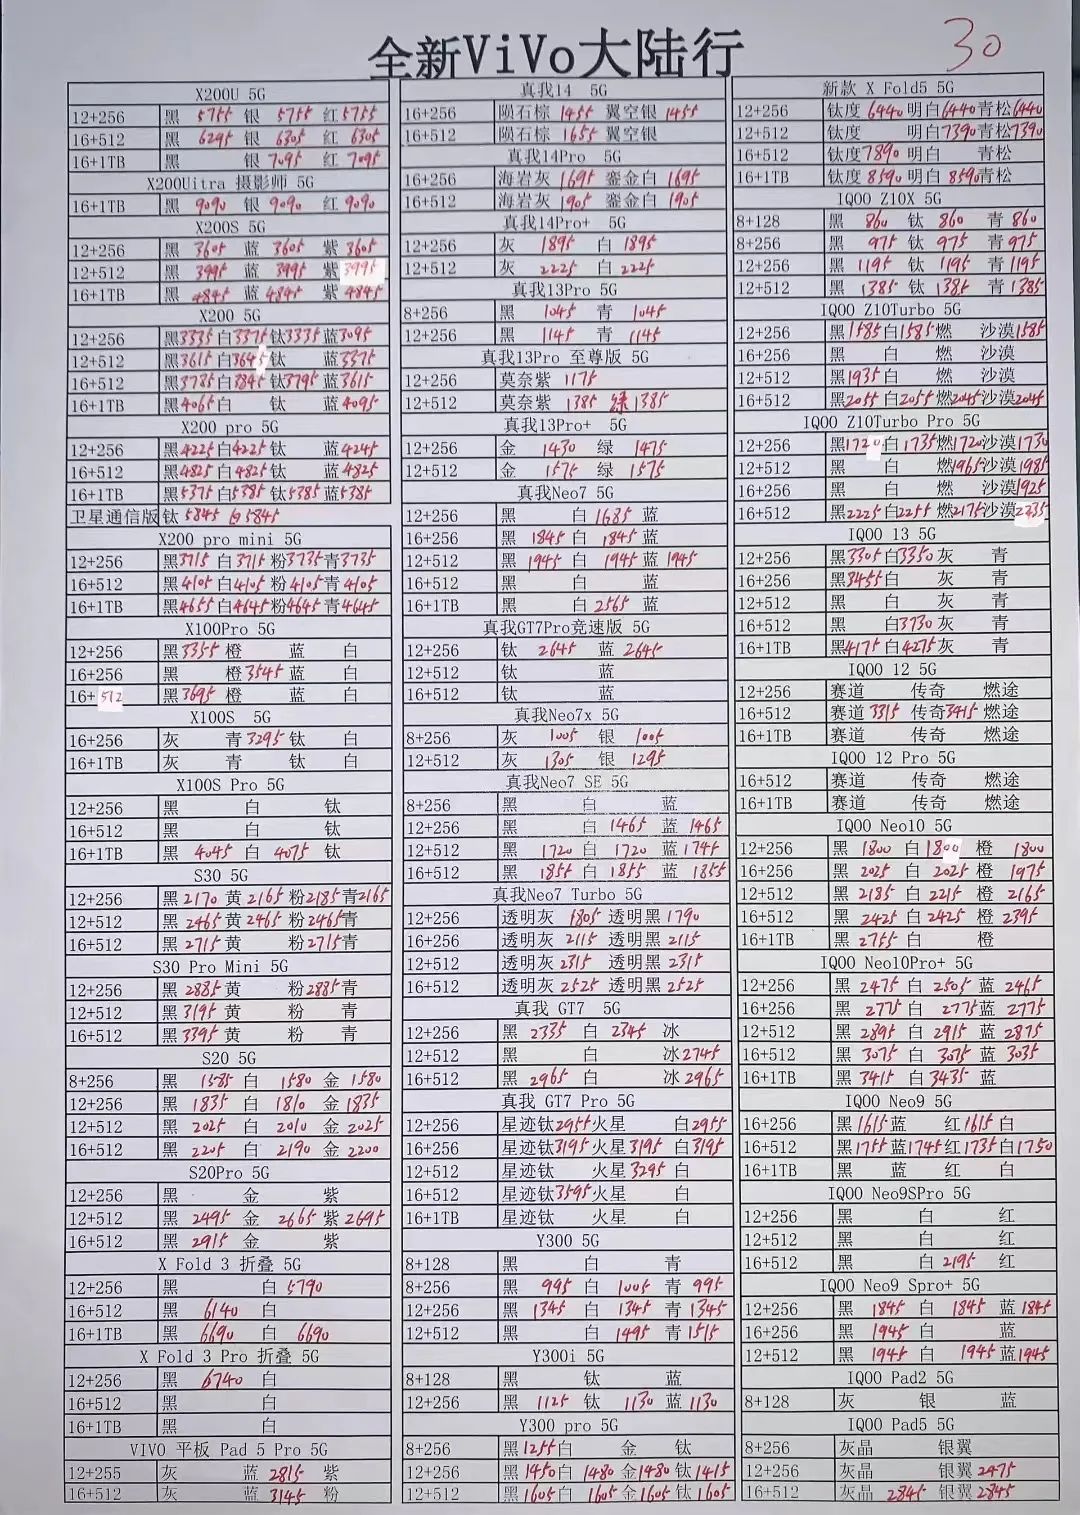 全新ViVo大陆行
30
X200U 5G
12+256 黑 5755 银 5755 红 5755
16+512 黑 6295 银 6305 红 6305
16+1TB 黑 银 7095 红 7095
X200Uitra 摄影师 5G
16+1TB 黑 9090 银 9090 红 9090
X200S 5G
12+256 黑 3605 蓝 3605 紫 3605
12+512 黑 3995 蓝 3995 紫 3995
16+1TB 黑 4845 蓝 4845 紫 4845
X200 5G
12+256 黑3335 白3375 钛3335 蓝3095
12+512 黑3615 白3645 钛 蓝3375
16+512 黑3785 白3845 钛3795 蓝3615
16+1TB 黑4065 白 钛 蓝4095
X200 pro 5G
12+256 黑4225 白4225 钛 蓝4245
16+512 黑4825 白4825 钛 蓝4825
16+1TB 黑5375 白5385 钛5385 蓝5385
卫星通信版 钛 5845 白5845
X200 pro mini 5G
12+256 黑3715 白3715 粉3735 青3735
16+512 黑4105 白4105 粉4105 青4105
16+1TB 黑4655 白4645 粉4645 青4645
X100Pro 5G
12+256 黑3355 橙 蓝 白
16+256 黑 橙3545 蓝 白
16+512 黑3695 橙 蓝 白
X100S 5G
16+256 灰 青3295 钛 白
16+1TB 灰 青 钛 白
X100S Pro 5G
12+256 黑 白 钛
16+512 黑 白 钛
16+1TB 黑 4045 白 4075 钛
S30 5G
12+256 黑2170 黄2165 粉2185 青2165
12+512 黑2465 黄2465 粉2465 青
16+512 黑2715 黄 粉2715 青
S30 Pro Mini 5G
12+256 黑2885 黄 粉2885 青
12+512 黑3195 黄 粉 青
16+512 黑3395 黄 粉 青
S20 5G
8+256 黑 1585 白 1580 金 1580
12+256 黑 1835 白 1810 金 1835
12+512 黑 2025 白 2010 金 2025
16+512 黑 2205 白 2190 金 2200
S20Pro 5G
12+256 黑 金 紫
12+512 黑 2495 金 2665 紫 2695
16+512 黑 2915 金 紫
X Fold 3 折叠 5G
12+256 黑 白 5790
16+512 黑 6140 白
16+1TB 黑 6690 白 6690
X Fold 3 Pro 折叠 5G
12+256 黑 6740 白
16+512 黑 白
16+1TB 黑 白
VIVO 平板 Pad 5 Pro 5G
12+255 灰 蓝 2815 紫
16+512 灰 蓝 3145 粉
真我14 5G
16+256 陨石棕 1455 翼空银 1455
16+512 陨石棕 1655 翼空银
真我14Pro 5G
16+256 海岩灰 1695 鎏金白 1695
16+512 海岩灰 1905 鎏金白 1905
真我14Pro+ 5G
12+256 灰 1895 白 1895
12+512 灰 2225 白 2225
真我13Pro 5G
8+256 黑 1045 青 1045
12+512 黑 1145 青 1145
真我13Pro 至尊版 5G
12+256 莫奈紫 1175
12+512 莫奈紫 1385 绿 1385
真我13Pro+ 5G
12+256 金 1430 绿 1475
12+512 金 1575 绿 1575
真我Neo7 5G
12+256 黑 白1685 蓝
16+256 黑 1845 白 1845 蓝
12+512 黑 1945 白 1945 蓝 1945
16+512 黑 白 蓝
16+1TB 黑 白2565 蓝
真我GT7Pro竞速版 5G
12+256 钛 2645 蓝 2645
12+512 钛 蓝
16+512 钛 蓝
真我Neo7x 5G
8+256 灰 1005 银 1005
12+512 灰 1305 银 1295
真我Neo7 SE 5G
8+256 黑 白 蓝
12+256 黑 白 1465 蓝 1465
12+512 黑 1720 白 1720 蓝 1745
16+512 黑 1855 白 1855 蓝 1855
真我Neo7 Turbo 5G
12+256 透明灰 1805 透明黑 1790
16+256 透明灰 2115 透明黑 2115
12+512 透明灰 2315 透明黑 2315
16+512 透明灰 2525 透明黑 2525
真我 GT7 5G
12+256 黑 2335 白 2345 冰
12+512 黑 白 冰2745
16+512 黑 2965 白 冰2965
真我 GT7 Pro 5G
12+256 星迹钛2955 火星 白2955
16+256 星迹钛3195 火星3195 白3195
12+512 星迹钛 火星3295 白
16+512 星迹钛3595 火星 白
16+1TB 星迹钛 火星 白
Y300 5G
8+128 黑 白 青
8+256 黑 995 白 1005 青 995
12+256 黑 1345 白 1345 青 1345
12+512 黑 白 1495 青 1515
Y300i 5G
8+128 黑 钛 蓝
12+256 黑 1125 钛 1130 蓝 1130
Y300 pro 5G
8+256 黑1255 白 金 钛
12+256 黑1450 白 1480 金1480 钛1415
12+512 黑1605 白 1605 金1605 钛1605
新款 X Fold5 5G
12+256 钛度 6440 明白6440 青松6440
12+512 钛度 明白7390 青松7390
16+512 钛度7890 明白 青松
16+1TB 钛度 8590 明白 8590 青松
IQOO Z10X 5G
8+128 黑 860 钛 860 青 860
8+256 黑 975 钛 975 青 975
12+256 黑 1195 钛 1195 青 1195
12+512 黑 1385 钛 1385 青 1385
IQOO Z10Turbo 5G
12+256 黑1585 白1585 燃 沙漠1585
16+256 黑 白 燃 沙漠
12+512 黑1935 白 燃 沙漠
16+512 黑2055 白2055 燃2045 沙漠2045
IQOO Z10Turbo Pro 5G
12+256 黑1720 白1735 燃1720 沙漠1730
12+512 黑 白 燃1965 沙漠1985
16+256 黑 白 燃 沙漠1925
16+512 黑2225 白2255 燃2175 沙漠2235
IQOO 13 5G
12+256 黑3305 白3350 灰 青
16+256 黑3455 白 灰 青
12+512 黑 白 灰 青
16+512 黑 白3730 灰 青
16+1TB 黑4175 白4275 灰 青
IQOO 12 5G
12+256 赛道 传奇 燃途
16+512 赛道 3315 传奇3415 燃途
16+1TB 赛道 传奇 燃途
IQOO 12 Pro 5G
16+512 赛道 传奇 燃途
16+1TB 赛道 传奇 燃途
IQOO Neo10 5G
12+256 黑 1800 白 1800 橙 1800
16+256 黑 2025 白 2025 橙 1975
12+512 黑 2185 白 2215 橙 2165
16+512 黑 2425 白 2425 橙 2395
16+1TB 黑 2755 白 橙
IQOO Neo10Pro+ 5G
12+256 黑 2475 白 2505 蓝 2465
16+256 黑 2775 白 2775 蓝 2775
12+512 黑 2895 白 2915 蓝 2875
16+512 黑 3075 白 3075 蓝 3035
16+1TB 黑 3415 白 3435 蓝
IQOO Neo9 5G
16+256 黑1615 蓝 红1615 白
16+512 黑1755 蓝1745 红1735 白1750
16+1TB 黑 蓝 红 白
IQOO Neo9SPro 5G
12+256 黑 白 红
12+512 黑 白 红
16+512 黑 白 2195 红
IQOO Neo9 Spro+ 5G
12+256 黑 1845 白 1845 蓝 1845
16+256 黑 1945 白 蓝
12+512 黑 1945 白 1945 蓝1945
IQOO Pad2 5G
8+128 灰 银 蓝
IQOO Pad5 5G
8+256 灰晶 银翼
12+256 灰晶 银翼 2475
16+512 灰晶 2845 银翼 2845